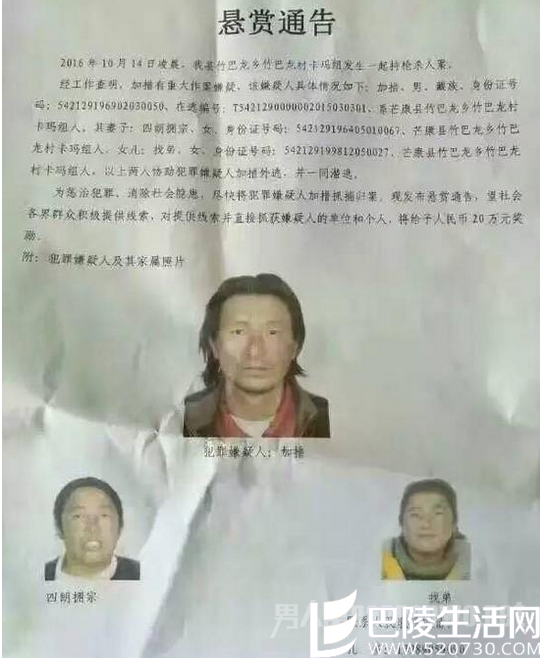 悬赏通告
2016年10月14日凌晨，我县竹巴龙乡竹巴龙村卡玛组发生一起持枪杀人案。
经工作查明，加措有重大作案嫌疑，该嫌疑人具体情况如下：加措、男、藏族、身份证号
码：542129196902030050、在逃编号：T5421290000002015030301、系芒康县竹巴龙乡竹巴龙村
卡玛组人，其妻子：四朗拥宗、女、身份证号码：542129196405010067、芒康县竹巴龙乡竹巴
龙村卡玛组人。女儿：找弟、女、身份证号码：542129199812050027、芒康县竹巴龙乡竹巴龙
村卡玛组人，以上两人协助犯罪嫌疑人加措外逃，并一同潜逃。
为惩治犯罪、消除社会隐患，尽快将犯罪嫌疑人加措抓捕归案。现发布悬赏通告，望社会
各界群众积极提供线索，对提供线索并直接抓获嫌疑人的单位和个人，将给予人民币20万元奖
励。
附：犯罪嫌疑人及其家属照片
犯罪嫌疑人：加措
四朗拥宗
找弟
男人
巴陵生活网
www.0730.com